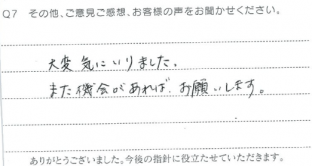 Q7 その他、ご意見ご感想、お客様の声をお聞かせください。
大変気にいりました。
また機会があれば、お願いします。
ありがとうございました。今後の指針に役立たせていただきます。